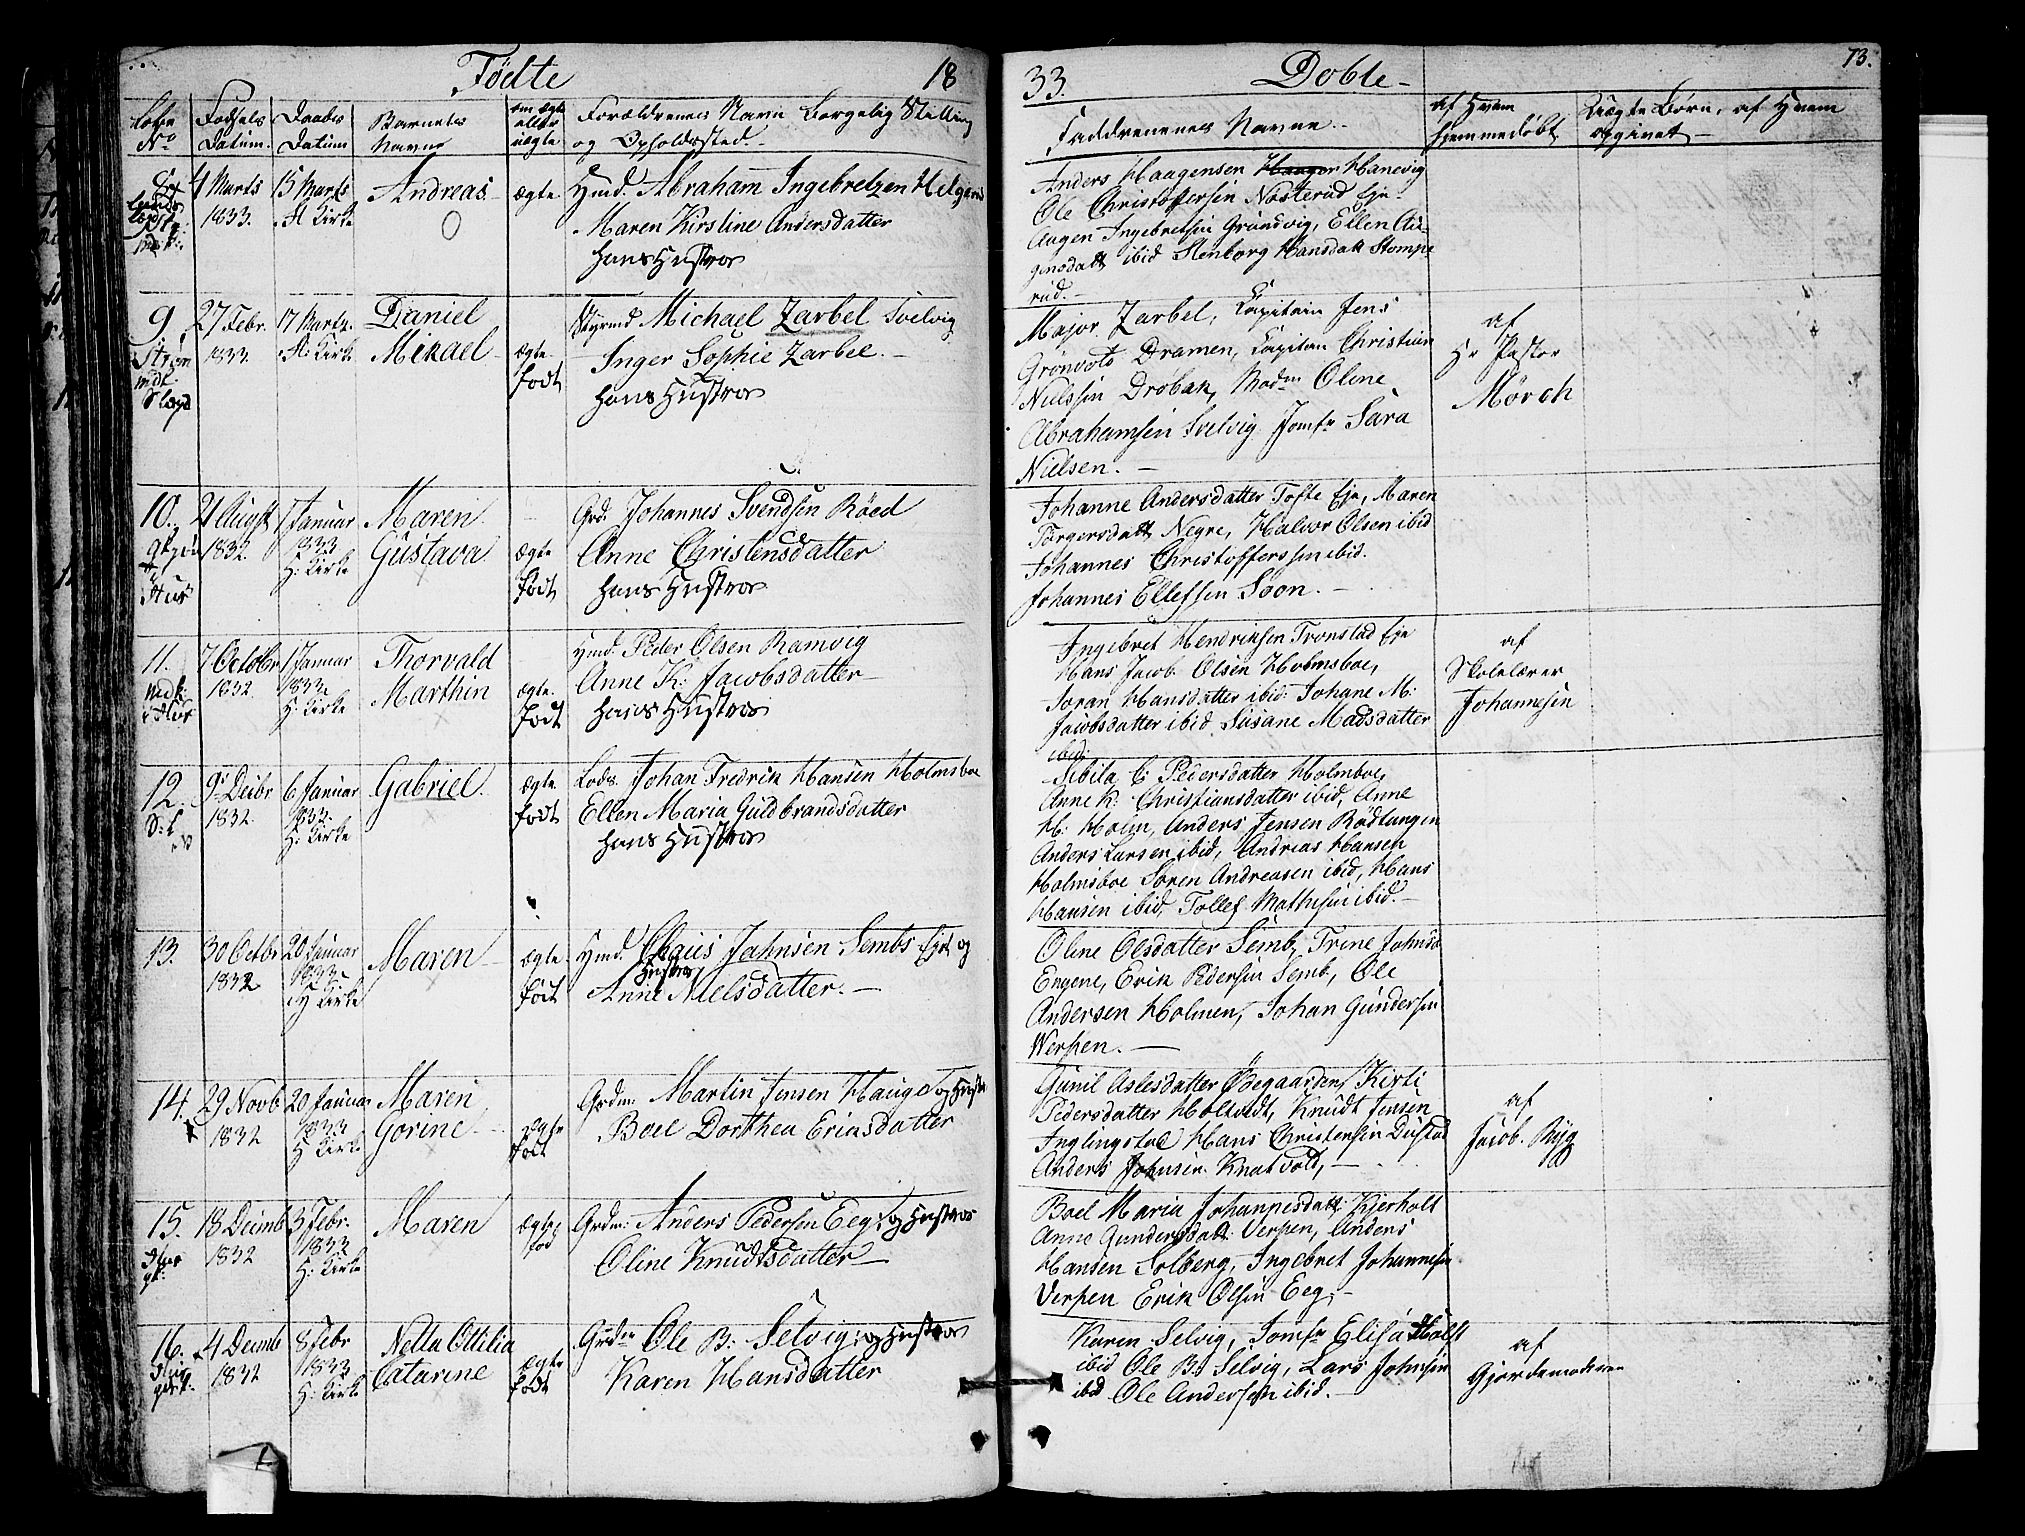 Födte 18
33. Döbte 73.
Løbe No
Fødsels Datum.
Daabs Datum
Barnets Navne
om ægte eller uægte
Forældrenes Navn Borgelig Stilling
og Opholdssted.
Faddrenenes Navne
af Hvem hjemmedøbt
Uægte Børn, af Hvem
opgivet
4 Marts 1833.
15 Marts
Kirke
Andreas
ægte
Hmd. Abraham Ingebretzen Helgerud
Maren Kirstine Andersdatter
hans Hustroe
Anders Haagensen Hanevig
Ole Christoffersen Nosterud Eje
Augen Ingebretsen Grundvig, Ellen Au-
gensdatt ibid Stenborg Hansdatt Stompe
rud.
9
Strøm
27 Febr. 1833
17 Marts.
Kirke
Daniel
Mikael
ægte
Födt
Styrmd Michael Zarbel Svelvig
Inger Sophie Zarbel.
hans Hustroe
Major Zarbel, Capitain Jens
Grönvold Dramen, Capitain Christian
Nielssen Dröbak, Madm Oline
Abrahamsen Svelvig Jomfr Sara
Nielsen.
af
Hr Pastor
Mörch
10.
21 August 1832
1 Januar 1833
H: Kirke
Maren
Gustava
ægte
Födt
Grd. Johannes Svendsen Röed
Anne Christensdatter
hans Hustroe
Johanne Andersdatter Tofte Eje, Maren
Torgersdatt Negre, Halvor Olsen ibid
Johannes Christofferssen ibid.
Johannes Ellefsen Soon.
11.
7 Octobr 1832.
1 Januar 1833
H: Kirke
Thorvald
Marthin
ægte
Födt
Hmd. Peder Olsen Ramvig
Anne K: Jacobsdatter
hans Hustroe
Ingebret Hendriksen Tronstad Eje
Hans Jacob Olsen Holmsboe,
Joran Hansdatter ibid. Johane M:
Jacobsdatter ibid. Susane Madsdatter
ibid.
af
Skolelærer
Johannesen
12.
9 Decbr 1832.
6 Januar 1833.
H: Kirke
Gabriel
ægte
födt
Lods. Johan Fredrik Hansen Holmsboe
Ellen Maria Guldbrandsdatter
hans Hustroe
Sibila C: Pedersdatter Holmboe,
Anne K: Christiansdatter ibid, Anne
H: Holm, Anders Jensen Rödtangen
Anders Larsen ibid, Andreas Hansen
Holmsboe Soren Andreasen ibid, Hans
Hansen ibid, Tollef Mathisen ibid.
13.
30 Octbr 1832
20 Januar 1833
H Kirke
Maren
ægte
födt
Hmd. Claus Jahnsen Sembs Eje og
Hustroe
Anne Nielsdatter.
Oline Olsdatter Semb, Trine Johnsd
Engene, Erik Pedersen Semb, Ole
Andersen Holmen, Johan Gundersen
Werpen.
14.
29 Novb 1832
20 Januar 1833
H Kirke
Maren
Gorine
ægte
födt
Grdm: Martin Jensen Hauge og Hustr
Boel Dorthea Eriksdatter
Gunil Aslesdatter Ödegaarden Kirti
Pedersdatter Holtvedt, Knudt Jensen
Inglingstad Hans Christensen Dustad
Anders Johnsen Knatvold,
af
Jacob. Ryg
15.
18 Decmb 1832
3 Febr. 1833
H: Kirke
Maren
ægte
föd
Grdm: Anders Pedersen Eeg, og Hustroe
Oline Knudtsdatter
Boel Maria Johannesdatt: Kjerholt
Anne Gundersdatt: Verpen, Anders
Hansen Solberg, Ingebret Johannesen
Verpen Erik Olsen Eeg,
16.
4 Decmb 1832
8 Febr 1833
H: Kirke
Netta Ottilia
Catarine
ægte
födt
Grdm Ole B: Selvig og Hustroe
Karen Hansdatter
Karen Selvig, Jomfr Elisa Holt
ibid Ole B: Selvig, Lars Johnsen
ibid Ole Andersen ibid.
af
Gjordemoderen